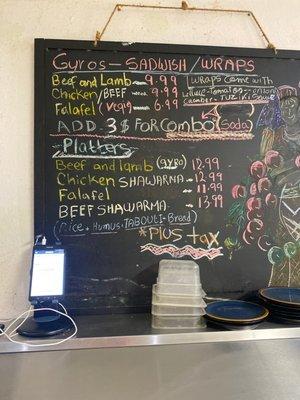 Gyros - SADWISH / WRAPS
Beef and Lamb - 9.99
Chicken/BEEF 9.99
Falafel (Vegi) 6.99
WRAPS COME WITH
Lettuce - Tomatoes - onion
Cucumber - TUZIKI SAUCE
ADD 3$ FOR Combo (Soda)
Platters
Beef and lamb (gyro) 12.99
Chicken SHAWARMA 12.99
Falafel 11.99
BEEF SHAWARMA 13.99
(Rice + Humus + TABOUTI - Bread)
*Plus tax